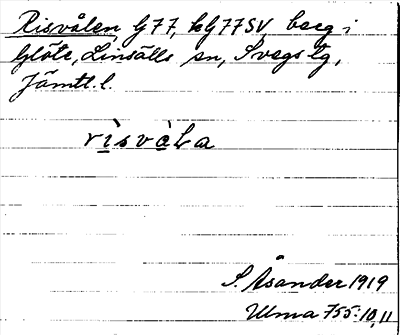 Risvålen G77, kG77SV, berg i
Glöte, Linsälls sn, Svegs tg,
Jämtl. l.
rìsvàLa
S. Åsander 1919
Ulma 755:10,11